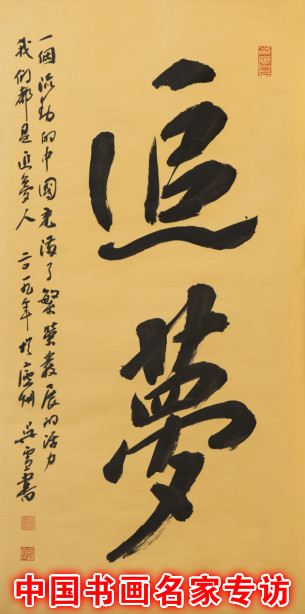 追夢
一個流動的中國充滿了繁榮發展的活力
我們都是追夢人 二〇一九年於廬州 吳雪書
中国书画名家专访